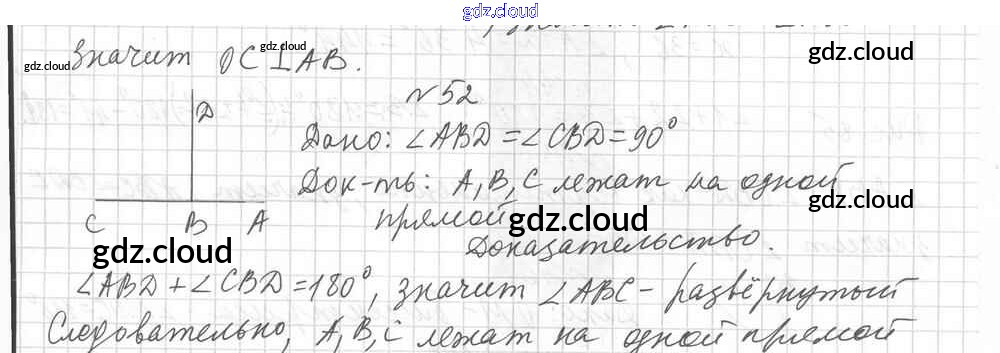 gdz.cloud
gdz.cloud
Значит OC⊥AB.
gdz.cloud
№52
D
Дано: ∠ABD = ∠CBD = 90°
Док-ть: A, B, C лежат на одной
gdz.cloud
C B A
прямой
gdz.cloud
gdz.cloud
Доказательство.
∠ABD + ∠CBD = 180°, значит ∠ABC - развёрнутый
Следовательно, A, B, C лежат на одной прямой